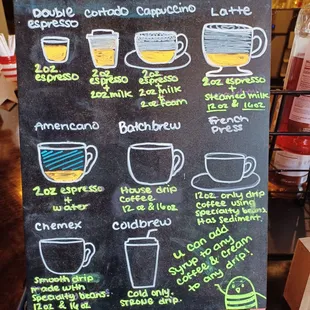 Double
espresso
Cortado
Cappuccino
Latte
2oz
espresso
2oz
espresso
+
2oz milk
2oz
espresso
+
2oz milk
+
2oz foam
2oz espresso
+
Steamed milk
12oz & 16oz
Americano
Batchbrew
French
Press
2oz espresso
+
water
House drip
coffee
12oz & 16oz
12oz only drip
coffee using
specialty beans
Has sediment.
Chemex
Coldbrew
Smooth drip
made with
specialty beans.
12oz & 16oz
Cold only
STRONG drip.
U can add
syrup to any
coffee & cream
to any drip!